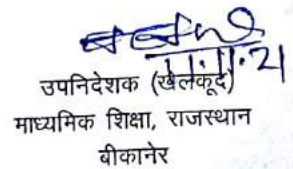 11.11.21
उपनिदेशक (खेलकूद)
माध्यमिक शिक्षा, राजस्थान
बीकानेर